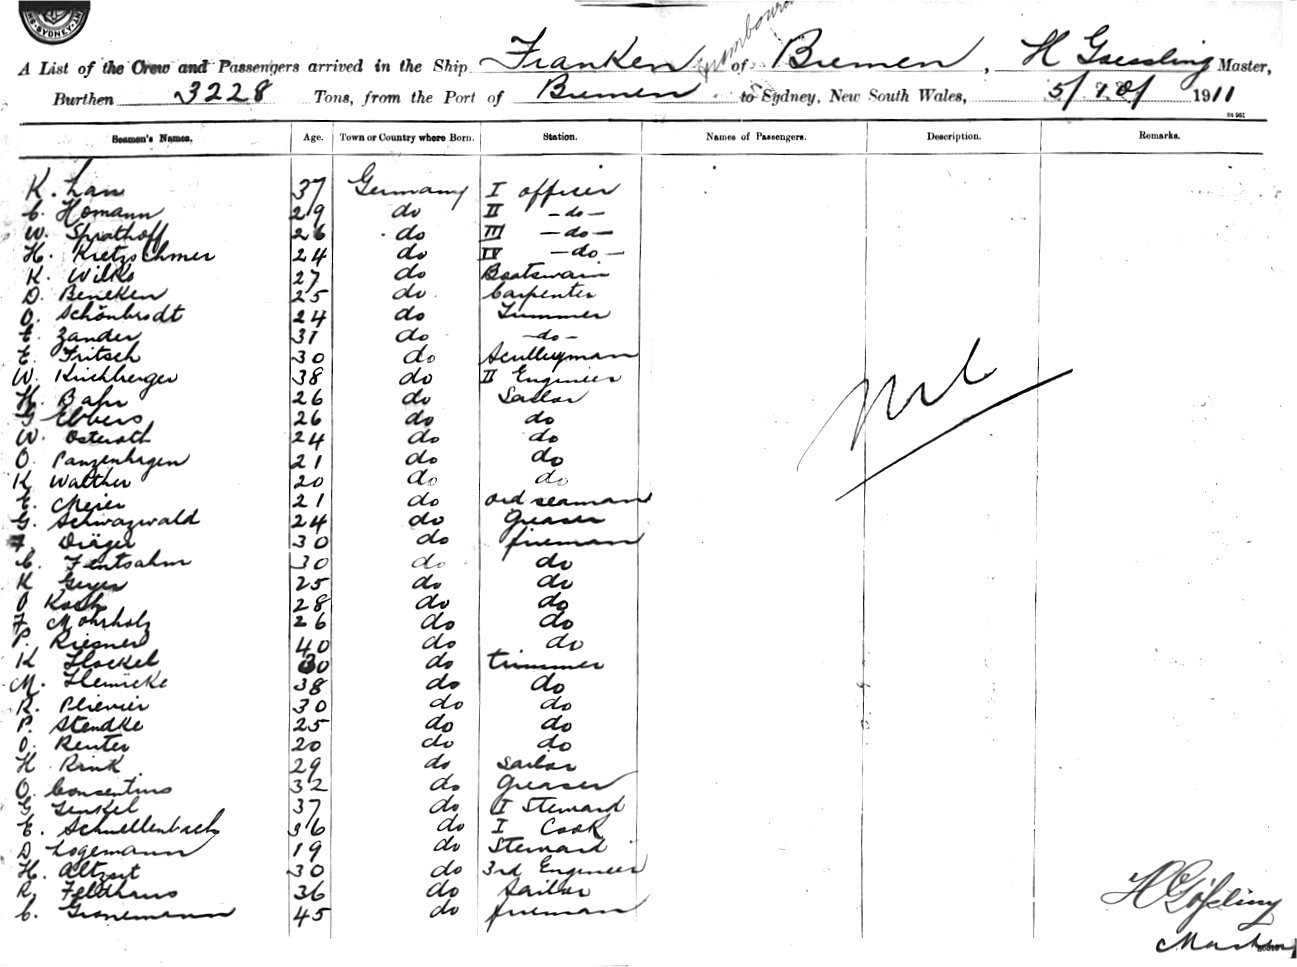 SYDNEY
A List of the Crew and Passengers arrived in the Ship Franken of Bremen, H Goessling Master,
Burthen 3228 Tons, from the Port of Bremen to Sydney, New South Wales, 5/ 1911
Seamen's Names. Age. Town or Country where Born. Station. Names of Passengers. Description. Remarks.
K. Lan 37 Germany I officer
C. Homann 29 do II -do-
W. Sprathoff 26 do III -do-
H. Kretzschmer 24 do IV -do-
K. Wilks 27 do Boatswain
D. Beneken 25 do Carpenter
O. Schönbrodt 24 do Trimmer
Zander 31 do -do-
Fritsch 30 do Sculleyman
W. Kirchberger 38 do II Engineer
H. Bahr 26 do Sailor
G Ebbers 26 do do
W. Osterath 24 do do
O. Panzenhagen 21 do do
K Walther 20 do do
Meier 21 do ord seaman
G. Schwazwald 24 do Greaser
Dräger 30 do fireman
C. Fentsahm 30 do do
K Geyer 25 do do
O Koch 28 do do
F Mohrholz 26 do do
P. Riesner 40 do do
K Hockel 30 do trimmer
M. Heinicke 38 do do
R. Plievier 30 do do
P. Stendke 25 do do
O. Renter 20 do do
H Rink 29 do Sailor
O. Consentius 32 do Greaser
G Henkel 37 do I Steward
E. Schnellenbach 36 do I Cook
D Logemann 19 do Steward
H. Altzeit 30 do 3rd Engineer
R. Feldhaus 36 do Sailor
C. Gronemann 45 do fireman
nil
H Gößling
Master